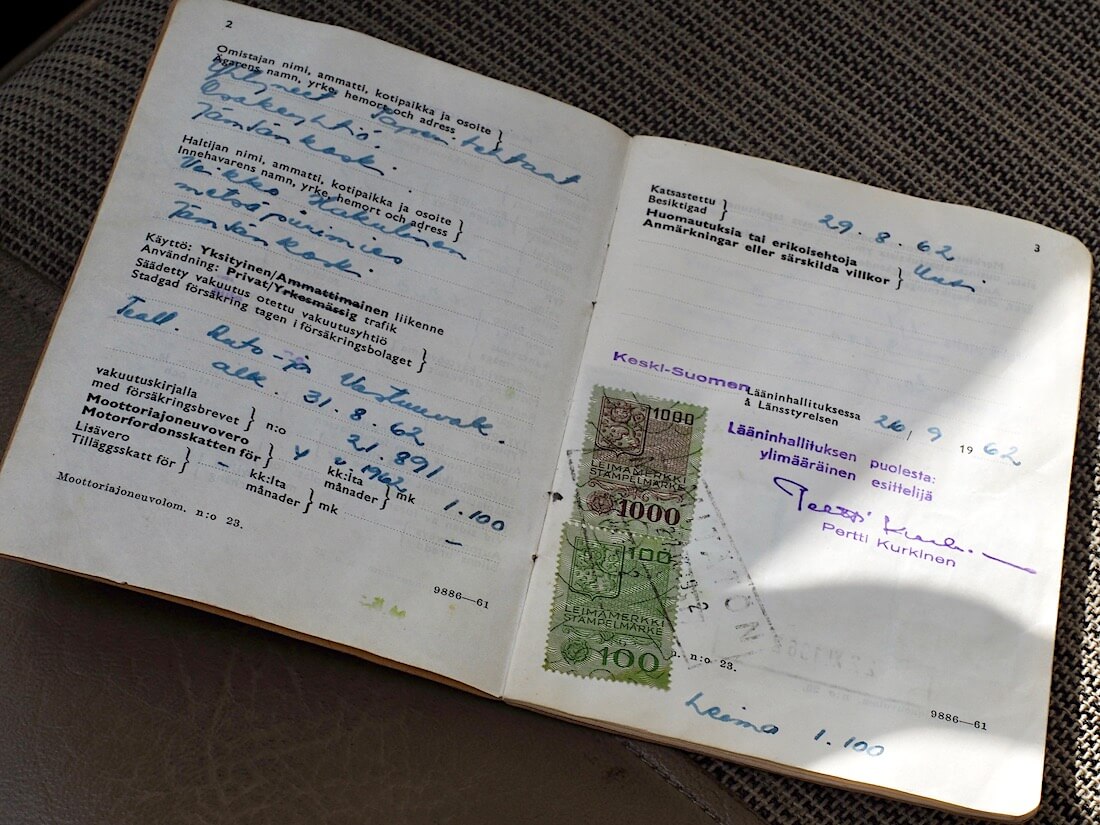 2
Omistajan nimi, ammatti, kotipaikka ja osoite }
Ägarens namn, yrke, hemort och adress
Yhtyneet Paperitehtaat
Osakeyhtiö.
Jämsänkoski.
Haltijan nimi, ammatti, kotipaikka ja osoite }
Innehavarens namn, yrke, hemort och adress
Veikko Hakulinen
metsäpiirimies
Jämsänkoski.
Käyttö: Yksityinen/Ammattimainen liikenne
Användning: Privat/Yrkesmässig trafik
Säädetty vakuutus otettu vakuutusyhtiö }
Stadgad försäkring tagen i försäkringsbolaget
Teoll. Auto- ja Vastuuvak.
alk. 31.8.62
vakuutuskirjalla }
med försäkringsbrevet n:o 21.891
Moottoriajoneuvovero }
Motorfordonsskatten för 4 kk:lta
månader } 1962 mk 1.100
Lisävero }
Tilläggsskatt för - kk:lta
månader } mk -
Moottoriajoneuvolom. n:o 23.
9886—61
3
Katsastettu }
Besiktigad 29.8.62
Huomautuksia tai erikoisehtoja }
Anmärkningar eller särskilda villkor Uusi.
Keski-Suomen Lääninhallituksessa
å Länsstyrelsen 26/9 1962
Lääninhallituksen puolesta:
ylimääräinen esittelijä
Pertti Kurkinen
1000
LEIMAMERKKI
STÄMPELMÄRKE
1000
100
LEIMAMERKKI
STÄMPELMÄRKE
100
n:o 23.
9886—61
Leima 1.100